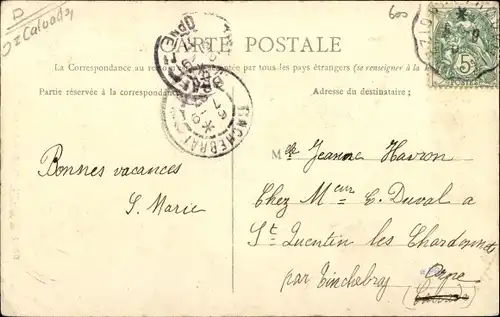 D
Calvados
600
CARTE POSTALE
La Correspondance au recto par tous les pays étrangers (se renseigner à la
Partie réservée à la correspondance
Adresse du destinataire ;
TINCHEBRAI
5c
Melle Jeanne Havron
Bonnes vacances
S. Marie
Chez Meur E. Duval a
St Quentin les Chardonnets
par Tinchebray Orne
(Calvados)